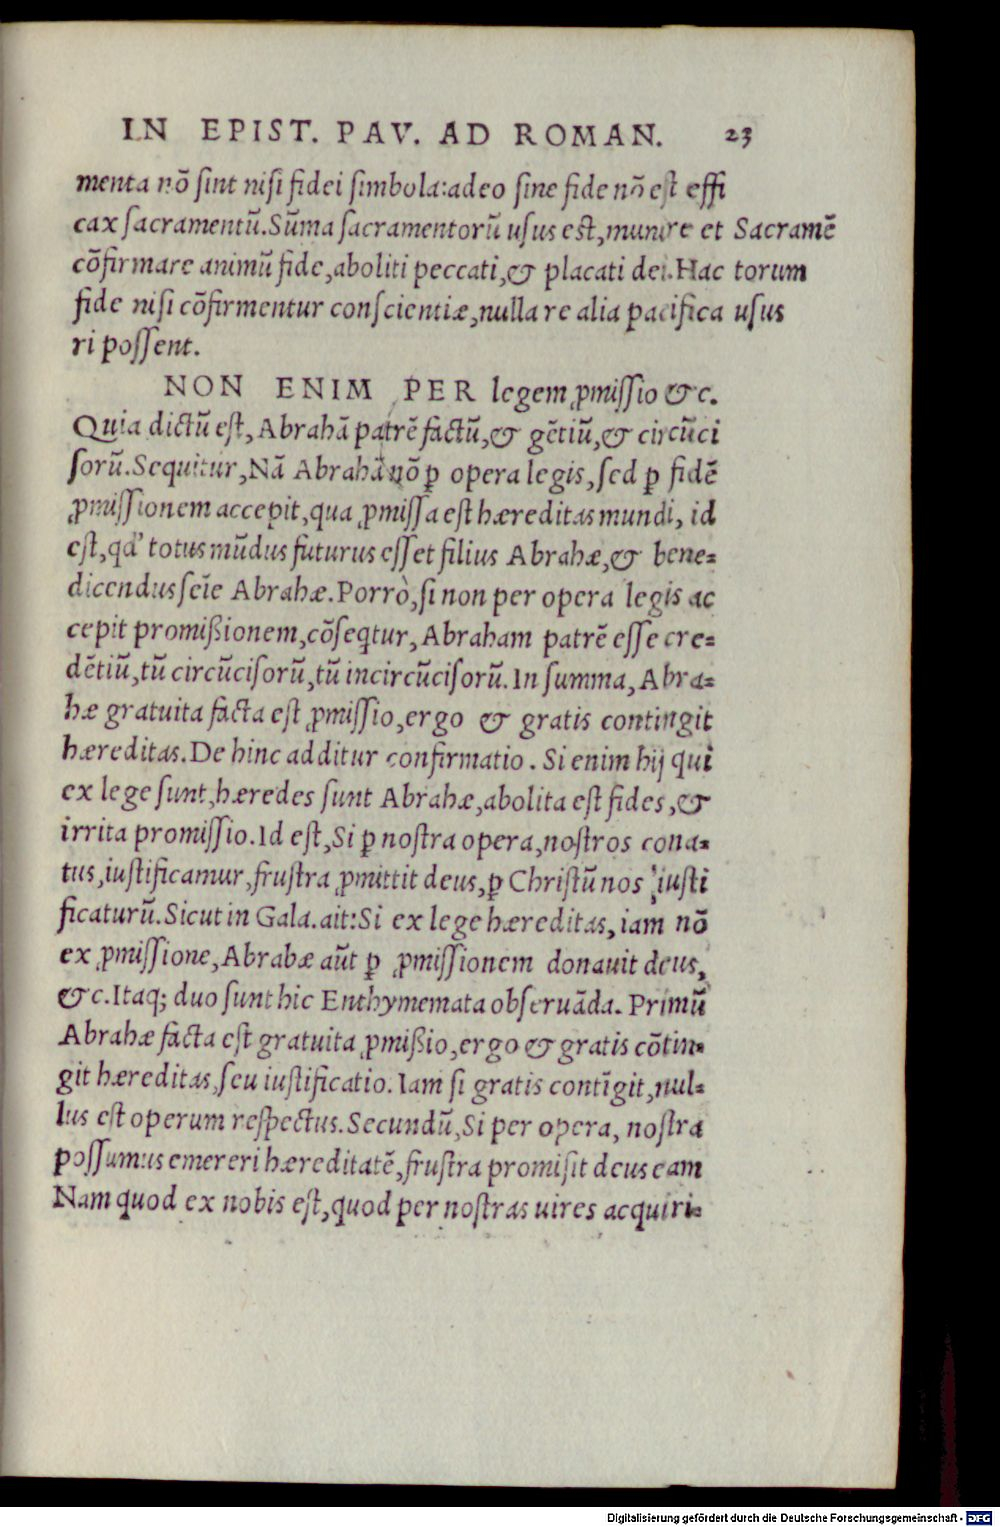 IN EPIST. PAV. AD ROMAN. 23
menta nō ſint niſi fidei ſimbola:adeo ſine fide nō eſt effi
cax ſacramentū.Sūma ſacramentorū uſus eſt,munire et Sacramē
cōfirmare animū fide,aboliti peccati,& placati dei.Hac torum
fide niſi cōfirmentur conſcientiæ,nulla re alia pacifica uſus
ri poſſent.
NON ENIM PER legem ꝓmiſſio &c.
Quia dictū eſt,Abrahā patrē factū,& gētiū,& circūci
ſorū.Sequitur,Nā Abrahā nō ꝑ opera legis,ſed ꝑ fidē
ꝓmiſſionem accepit,qua ꝓmiſſa eſt hæreditas mundi, id
eſt,qd' totus mūdus futurus eſſet filius Abrahæ,& bene=
dicendus ſeīe Abrahæ.Porrò,ſi non per opera legis ac
cepit promißionem,cōſeqtur,Abraham patrē eſſe cre=
dētiū,tū circūciſorū,tū incircūciſorū.In ſumma,Abra=
hæ gratuita facta eſt ꝓmiſſio,ergo & gratis contingit
hæreditas.De hinc additur confirmatio. Si enim hij qui
ex lege ſunt,hæredes ſunt Abrahæ,abolita eſt fides,&
irrita promiſſio.Id eſt,Si ꝑ noſtra opera,noſtros cona=
tus,iuſtificamur,fruſtra ꝓmittit deus,ꝑ Chriſtū nos iuſti
ficaturū.Sicut in Gala.ait:Si ex lege hæreditas,iam nō
ex ꝓmiſſione,Abrabæ aūt ꝑ ꝓmiſſionem donauit deus,
&c.Itaq; duo ſunt hic Enthymemata obſeruāda. Primū
Abrahæ facta eſt gratuita ꝓmißio,ergo & gratis cōtin=
git hæreditas,ſeu iuſtificatio.Iam ſi gratis contīgit,nul=
lus eſt operum reſpectus.Secundū,Si per opera, noſtra
poſſumus emereri hæreditatē,fruſtra promiſit deus eam
Nam quod ex nobis eſt,quod per noſtras uires acquiri=
Digitalisierung gefördert durch die Deutsche Forschungsgemeinschaft - DFG